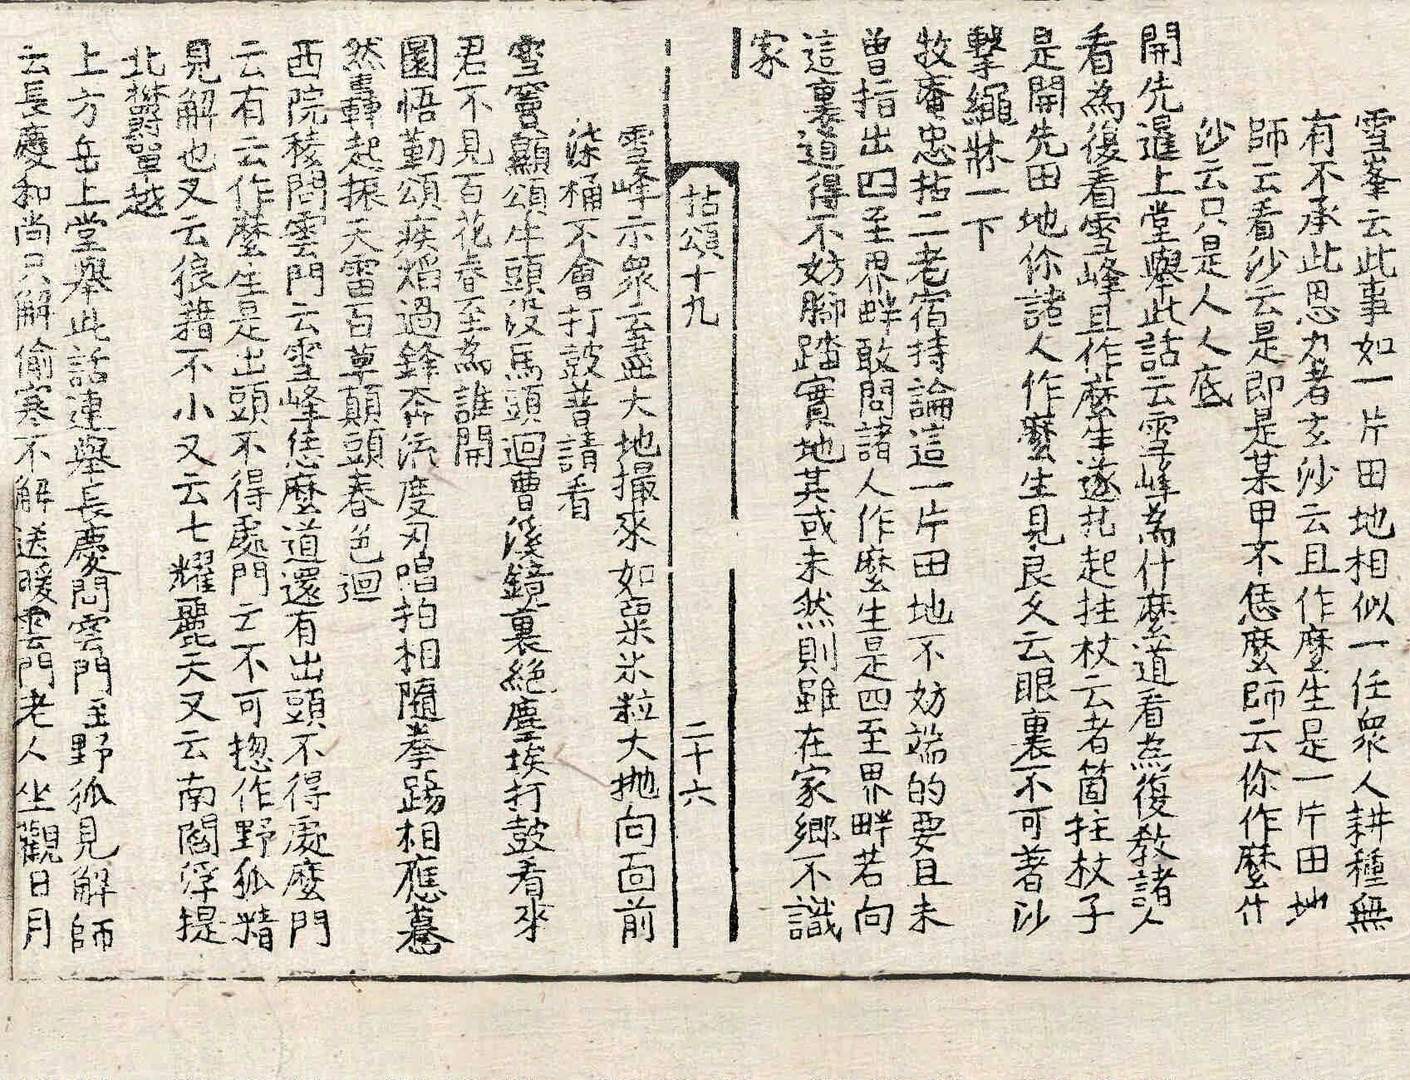 雪峯云此事如一片田地相似一任衆人耕種無
有不承此恩力者玄沙云且作麽生是一片田地
師云看沙云是即是某甲不恁麽師云你作麽什
沙云只是人人底
開先暹上堂舉此話云雪峰爲什麽道看爲復教諸人
看爲復看雪峰且作麽生遂扎起拄杖云者箇拄杖子
是開先田地你諸人作麽生見良久云眼裏不可著沙
擊繩牀一下
牧菴忠拈二老宿持論這一片田地不妨端的要且未
曾指出四至界畔敢問諸人作麽生是四至界畔若向
這裏道得不妨腳踏實地其或未然則雖在家鄉不識
家
拈頌十九 二十六
雪峰示衆云盡大地撮來如粟米粒大抛向面前
柒桶不會打鼓普請看
雪竇顯頌牛頭没馬頭迴曹溪鏡裏絶塵埃打鼓看來
君不見百花春至爲誰開
圜悟勤頌疾焰過鋒奔流度刃唱拍相隨拳踢相應驀
然轟起振天雷百草顛頭春色迴
西院稜問雲門云雪峰恁麽道還有出頭不得處麽門
云有云作麽生是出頭不得處門云不可揔作野狐精
見解也又云狼藉不小又云七耀麗天又云南閻浮提
北欝單越
上方岳上堂舉此話連舉長慶問雲門至野狐見解師
云長慶和尚只解偷寒不解送暖雲門老人坐觀日月